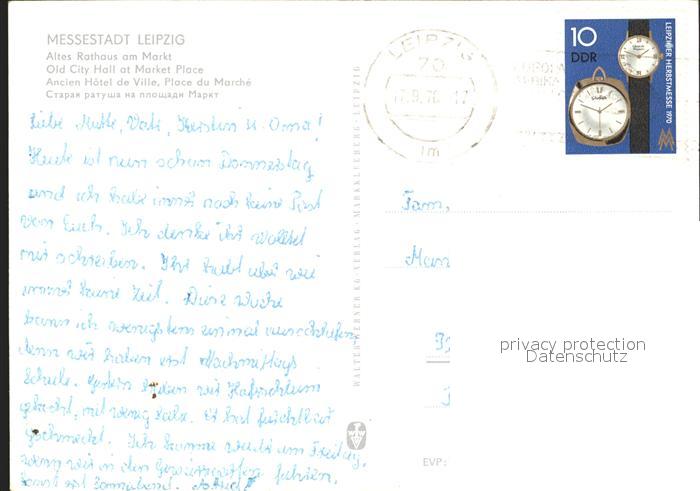 MESSESTADT LEIPZIG
Altes Rathaus am Markt
Old City Hall at Market Place
Ancien Hôtel de Ville, Place du Marché
Старая ратуша на площади Маркт
Liebe Mutti, Vati, Kerstin u. Oma!
Heute ist nun schon Donnerstag
und ich habe immer noch keine Post
von Euch. Ich denke ihr wolltet
mir schreiben. Ihr habt aber wie
immer keine Zeit. Diese Woche
kann ich wenigstens einmal ausschlafen,
denn wir haben erst Nachmittags
Schule. Gestern haben wir
gekocht, mit wenig Salz. Es hat furchtbar
geschmeckt. Ich komme am Freitag,
wenn wir in den fahren,
sonst erst Sonnabend.
WALTER WERNER KG · VERLAG · MARKKLEEBERG-LEIPZIG
LEIPZIG
70
.9.70-17
1m
10
DDR
LEIPZIGER HERBSTMESSE 1970
Fam.
privacy protection
Datenschutz
EVP: